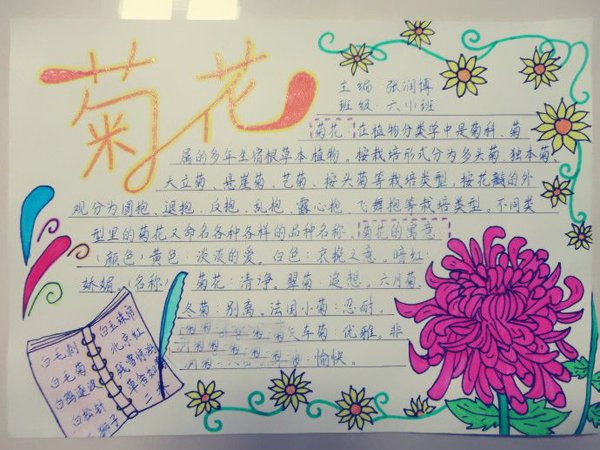 菊花
主编 张润博
班级 六小班
菊花 在植物分类学中是菊科、菊
属的多年生宿根草本植物。按栽培形式分为多头菊、独本菊、
大立菊、悬崖菊、艺菊、接头菊等栽培类型，按花瓣的外
观分为园抱、退抱、反抱、乱抱、露心抱、飞舞抱等栽培类型。不同类
型里的菊花又命名各种各样的品种名称、菊花的寓意：
（颜色）黄色：淡淡的爱。白色：哀挽之意。暗红：
娇媚（名称） 菊花：清净。翠菊 追想。六月菊：
冬菊：别离。法国小菊：忍耐，
车菊 优雅。非
愉快。
白毛菊
白松针
狮子